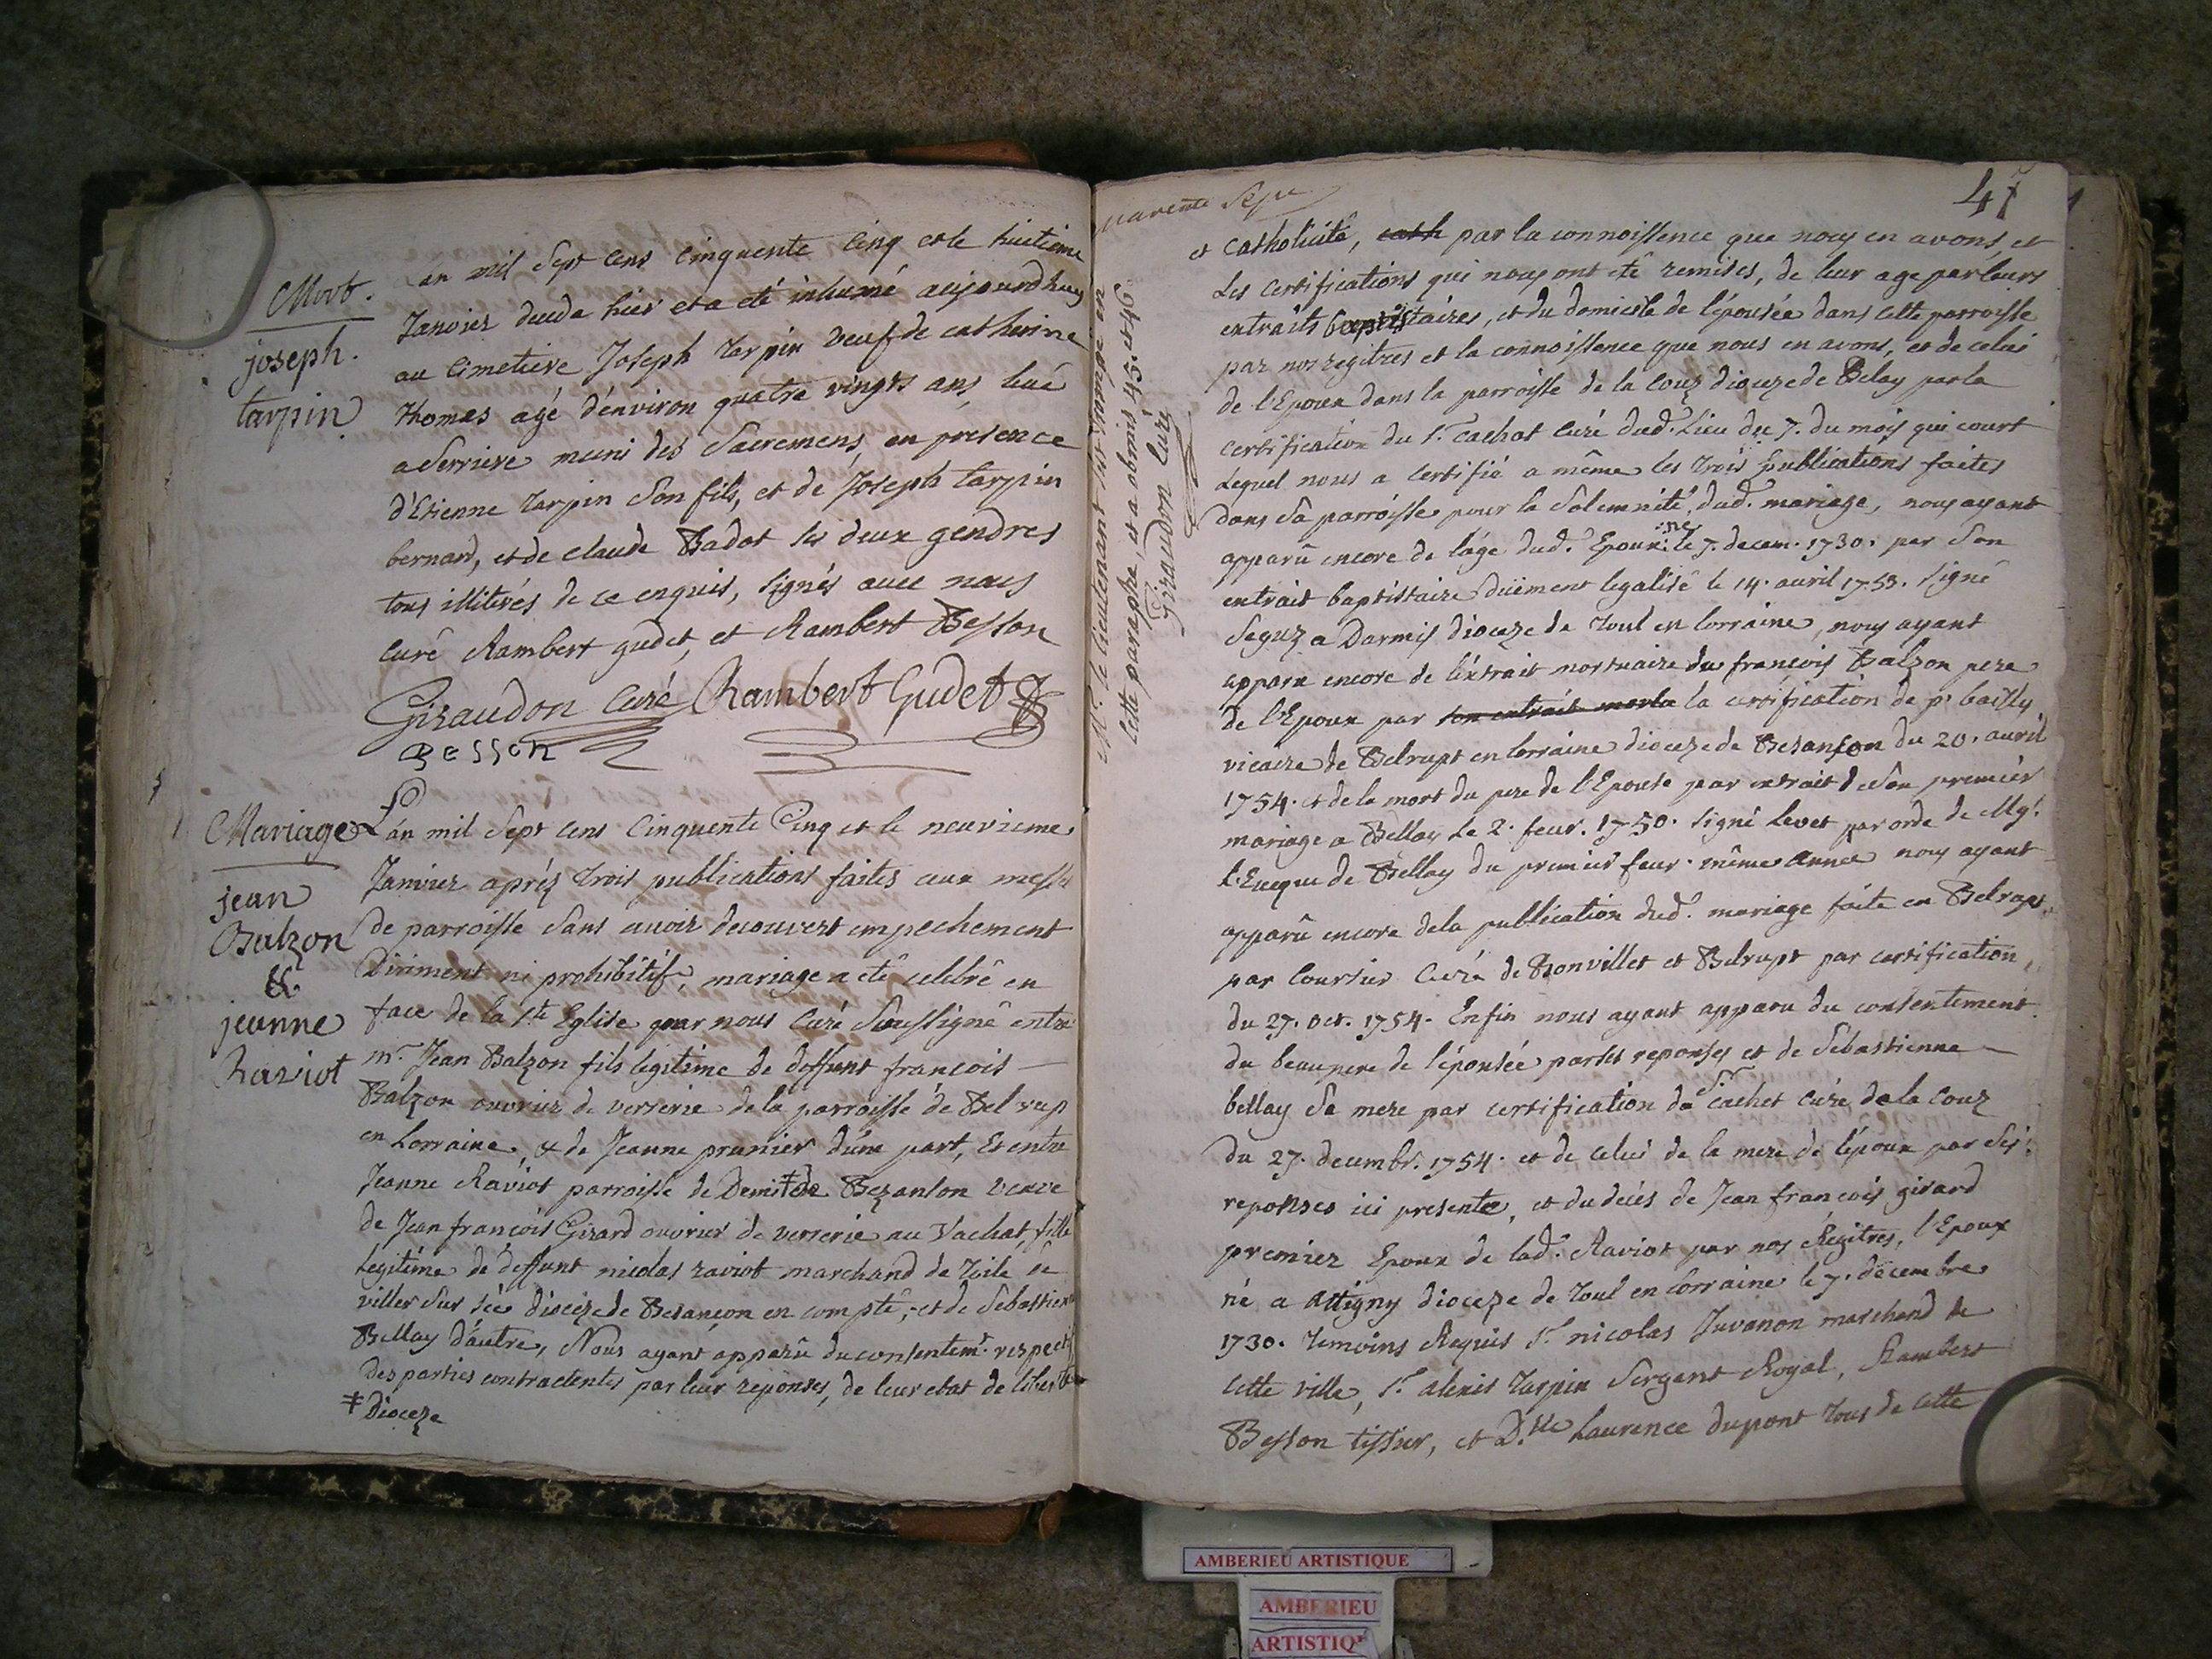 Mort.
joseph.
tarpin
Lan mil Sept Cens Cinquente Cinq et le huitieme
Janvier decéda hier et a eté inhumé aujourdhuy
au Cimetiere Joseph tarpin veuf de catherine
thomas agé d'énviron quatre vingts ans, tué
a Serriere muni des Sacremens, en presence
d'Etienne tarpin Son fils, et de Joseph tarpin
bernard, et de claude Badot ses deux gendres
tous illiterés de ce enquis, signés avec nous
Curé Rambert gudet, et Rambert Besson
Giraudon Curé Rambert Gudet
BESSON
Mariage
jean
Balzon
&
jeanne
Raviot
L'an mil Sept Cens Cinquente Cinq et le neuvieme
Janvier apréz trois publications faites aux messes
de parroisse Sans avoir decouvert empechement
Diriment ni prohibitif, mariage a eté celebré en
face de la Ste Eglise par nous Curé Soussigné entre
mr. Jean Balzon fils legitime de deffunt francois
Balzon ouvrier de verrerie de la parroisse de Bel rup
en Lorraine, & de Jeanne prunier d'une part, Et entre
Jeanne Raviot parroisse de ‡ de Bezanson veuve
de Jean francois Girard ouvrier de verrerie au Vachat, fille
legitime de deffunt nicolas raviot marchand de toile de
viller Sur diocèze de Besançon en comté, et de Sebastienne
Bellay d'autre, Nous ayant apparû du consentemt. respectif
des parties contractentes par leur reponses, de leur etat de liberté
‡ Dioceze
Mr. le lieutenant s'est trompé en
cette paraphe, et a obmis 45. et 46
Giraudon Curé
47
et Catholicité, cath par la connoissence que nous en avons, et
Les Certifications qui nous ont eté remises, de leur age par leurs
extraits baptistaires, et du domicile de l'épousée dans cette parroisse
par nos regitres et la connoissence que nous en avons, et de celui
de l'Epoux dans la parroisse de la Couz diouzede Belay par la
certification du Sr. Cachot Curé dud. Lieu du 7. du mois qui court
Lequel nous a Certifié a même les trois publications faites
dans Sa parroisse pour la Solemnité dud. mariage, nous ayant
apparû encore de l'áge dud. Epoux né le 7. decem. 1730. par Son
extrait baptistaire düement legalisé le 14. avril 1753. Signé
Seguz a Darmis dioceze de toul en lorraine, nous ayant
apparu encore de l'éxtrait mortuaire du françois Balzon pere
de l'Epoux par son extrait mortu la certification de pr bailly
vicaire de Belrupt en lorraine dioceze de Besançon du 20. avril
1754. et de la mort du pere de l'Epouse par extrait de Son premier
mariage a Bellay Le 2. feur. 1750. Signé Levet par orde de Mgr.
l'Eveque de Bellay du premier feur. même année nous ayant
apparû encore de la publication dud. mariage faite en Belrupt
par Coursier Curé de Bonvillet et Belrupt par certification
du 27. oct. 1754. Enfin nous ayant apparu du consentement
du beaupere de l'épousée par ses reponses et de Sebastienne
bellay Sa mere par certification du Sr Cachet Curé de la Couz
du 27. decembr. 1754. et de celui de la mere de l'époux par Ses
reponses ici presente, et du decés de Jean francois girard
premier Epoux de lad. Raviot par nos Régitres, l'Epoux
né a Attigny dioceze de toul en lorraine le 7. decembre
1730. temoins Requis Sr. nicolas Juvanon marchand de
cette ville, Sr. alexis tarpin Sergent Royal, Rambert
Besson tissier, et D.lle Laurence dupont tous de cette
AMBERIEU ARTISTIQUE
AMBERIEU
ARTISTIQ